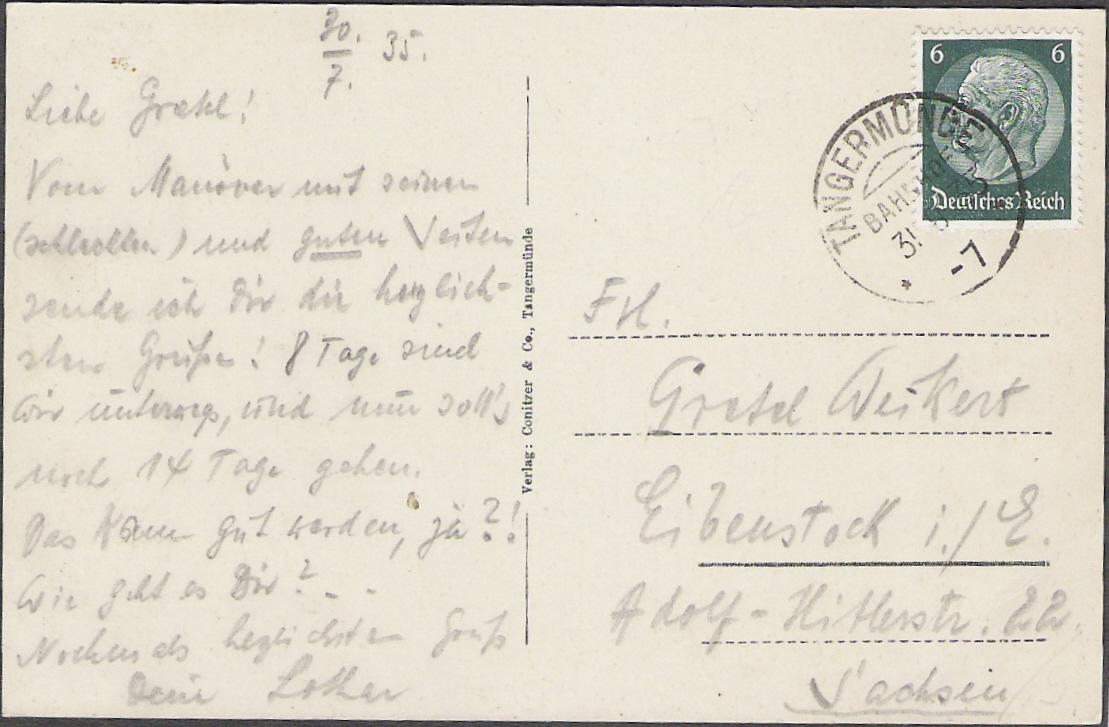 30. 35.
7.
Liebe Gretel!
Vom Manöver mit seinen
(schlechten) und guten Seiten
sende ich Dir die herzlich-
sten Grüße! 8 Tage sind
wir unterwegs, und nun soll's
noch 14 Tage gehen.
Das kann gut werden, ja?!
Wie geht es Dir? - -
Nochmals herzlichsten Gruß
Dein Lothar
Verlag: Conitzer & Co., Tangermünde
6 6
Deutsches Reich
TANGERMÜNDE
BAHNHOF
31
-7
Frl.
Gretel Weikert
Eibenstock i./E.
Adolf-Hitlerstr. 22.
Sachsen